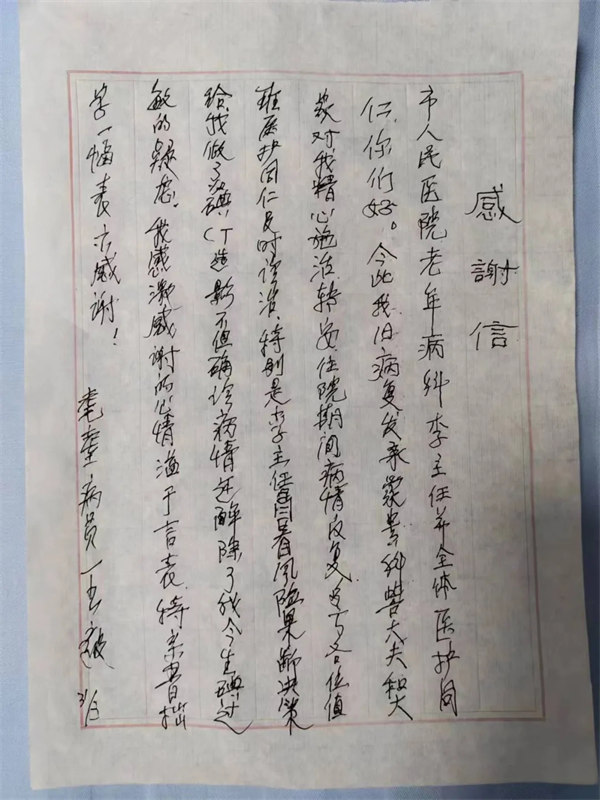 感謝信
市人民医院老年病科李主任并全体医护同
仁，你们好。今此我旧病复发承蒙贵科曹大夫和大
家对我精心施治转安住院期间病情反复多亏各位值
班医护同仁及时诊治，特别是李主任冒着风险果断决策
给我做了碘CT造影不但确诊病情还解除了我今生碘过
敏的疑虑。我感激感谢的心情溢于言表，特亲书拙
字一幅表示感谢！
耄耋病员 王